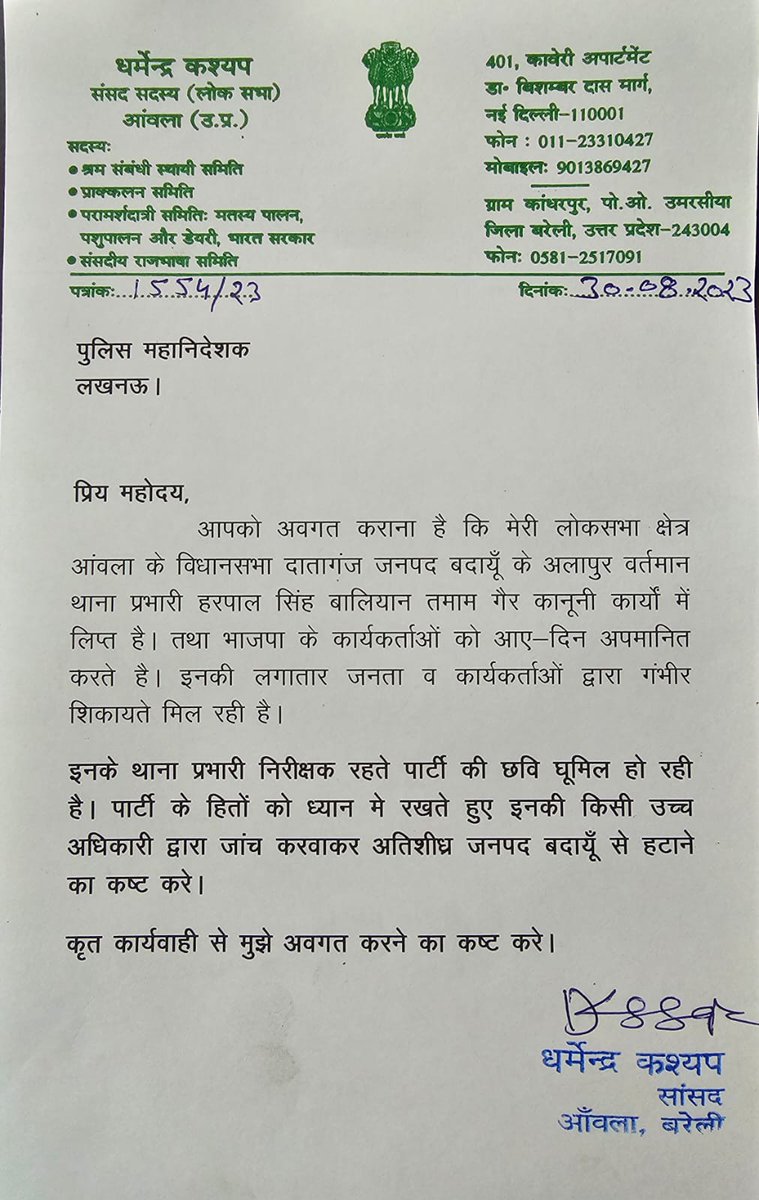 धर्मेन्द्र कश्यप
संसद सदस्य (लोक सभा)
आंवला (उ.प्र.)
सदस्यः
• श्रम संबंधी स्थायी समिति
• प्राक्कलन समिति
• परामर्शदात्री समितिः मतस्य पालन,
पशुपालन और डेयरी, भारत सरकार
• संसदीय राजभाषा समिति
401, कावेरी अपार्टमेंट
डा॰ बिशम्बर दास मार्ग,
नई दिल्ली-110001
फोन : 011-23310427
मोबाइलः 9013869427
ग्राम कांधरपुर, पो.ओ. उमरसीया
जिला बरेली, उत्तर प्रदेश-243004
फोनः 0581-2517091
पत्रांकः 1554/23
दिनांकः 30-08.2023
पुलिस महानिदेशक
लखनऊ।
प्रिय महोदय,
आपको अवगत कराना है कि मेरी लोकसभा क्षेत्र
आंवला के विधानसभा दातागंज जनपद बदायूँ के अलापुर वर्तमान
थाना प्रभारी हरपाल सिंह बालियान तमाम गैर कानूनी कार्यों में
लिप्त है। तथा भाजपा के कार्यकर्ताओं को आए–दिन अपमानित
करते है। इनकी लगातार जनता व कार्यकर्ताओं द्वारा गंभीर
शिकायते मिल रही है।
इनके थाना प्रभारी निरीक्षक रहते पार्टी की छवि घूमिल हो रही
है। पार्टी के हितों को ध्यान मे रखते हुए इनकी किसी उच्च
अधिकारी द्वारा जांच करवाकर अतिशीध्र जनपद बदायूँ से हटाने
का कष्ट करे।
कृत कार्यवाही से मुझे अवगत करने का कष्ट करे।
धर्मेन्द्र कश्यप
सांसद
आँवला, बरेली